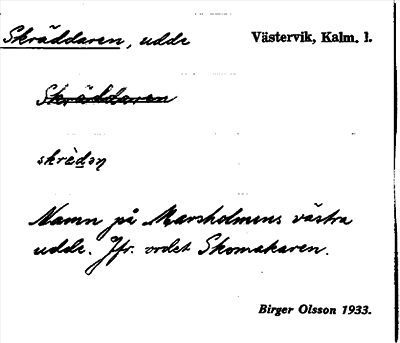 Skräddaren, udde Västervik, Kalm. l.
Skräddaren
skrèdəɳ
Namn på Marsholmens västra
udde. Jfr. ordet Skomakaren.
Birger Olsson 1933.